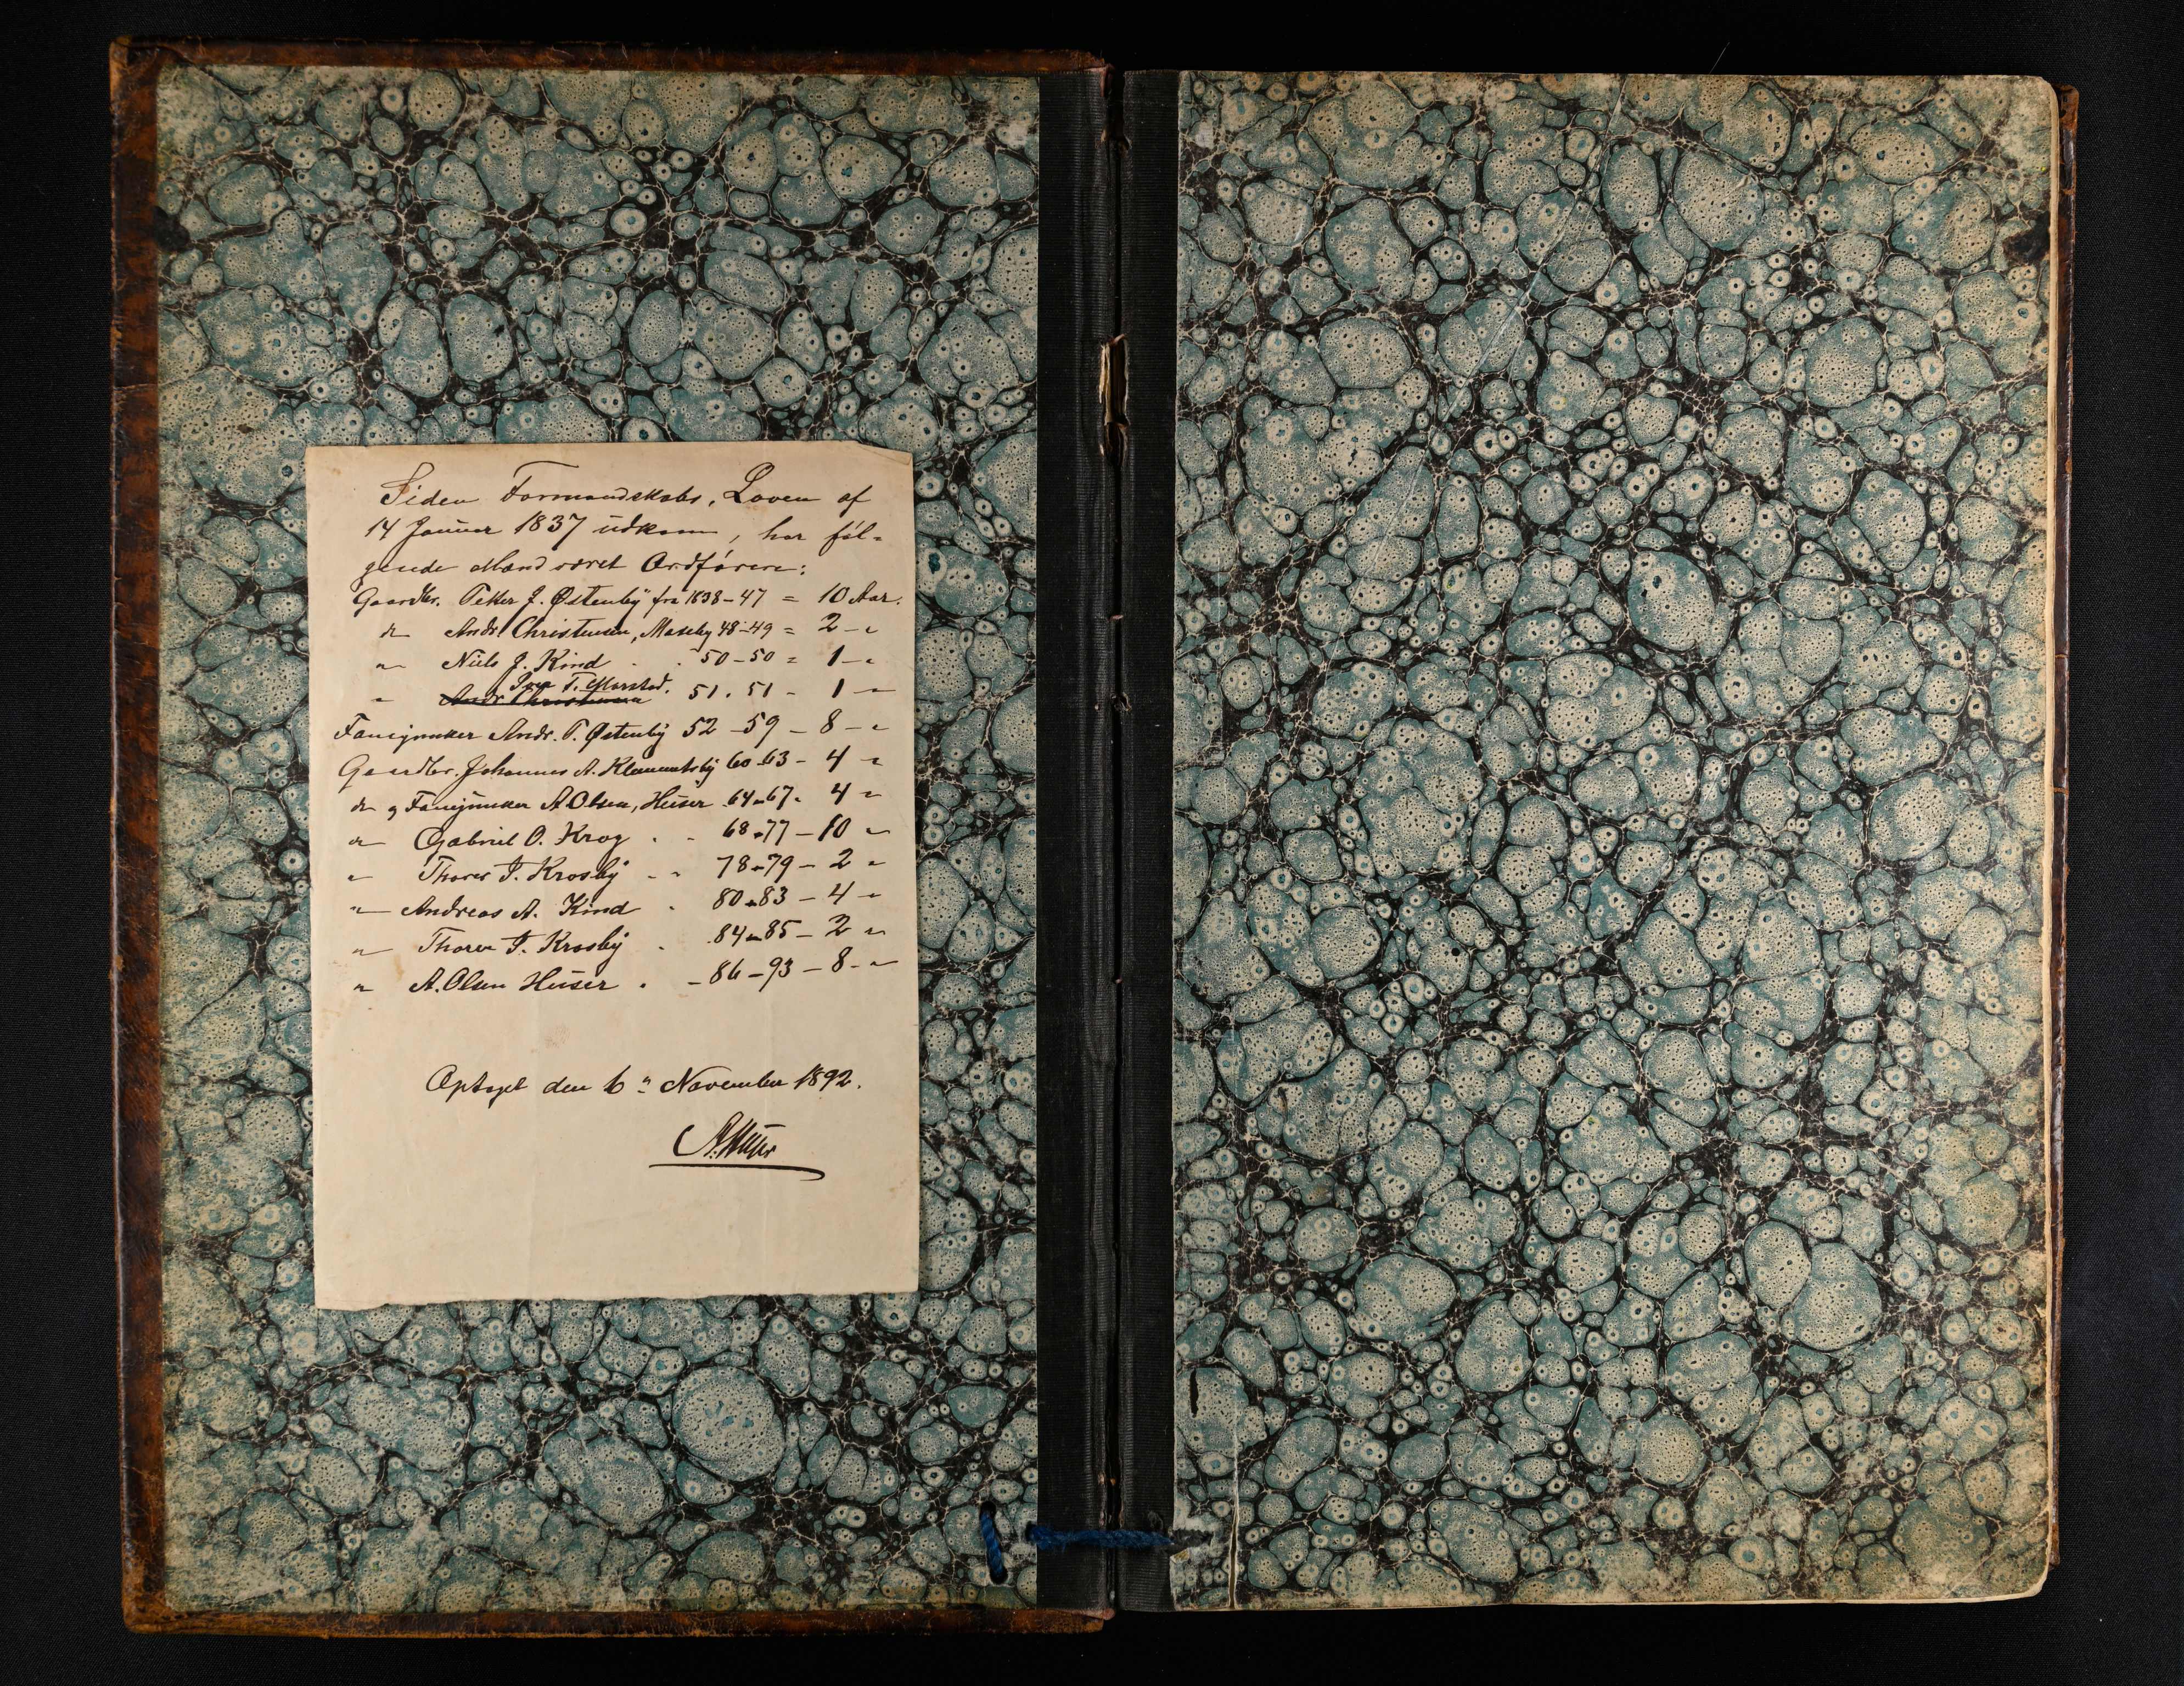 Siden Formandskabs, Loven af
14 Januar 1837 udkom, har føl-
gende Mænd været Ordførere:
Gaardbr. Petter J. Østenby fra 1838-47 = 10 Aar.
do Andr. Christensen, Maseby 48-49 = 2 - "
" Niels J. Kind . . 50-50 = 1 - "
" Andr Christensen T. Marstad. 51. 51 - 1 - "
Fanejunker Andr. P. Østenby 52-59 - 8 - "
Gaardbr. Johannes A. Klemmetsby 60-63 - 4 "
do og Fanejunker A. Olsen, Huser 64-67. 4 "
do Gabriel O. Krog . . 68-77 - 10 "
" Thorer T. Krosby - - 78-79 - 2 "
" Andreas A. Kind . 80-83 - 4 "
" Thorer T. Krosby . 84-85 - 2 "
" A. Olsen Huser . - 86-93 - 8 - "
Optaget den 6te November 1892.
A. Huser